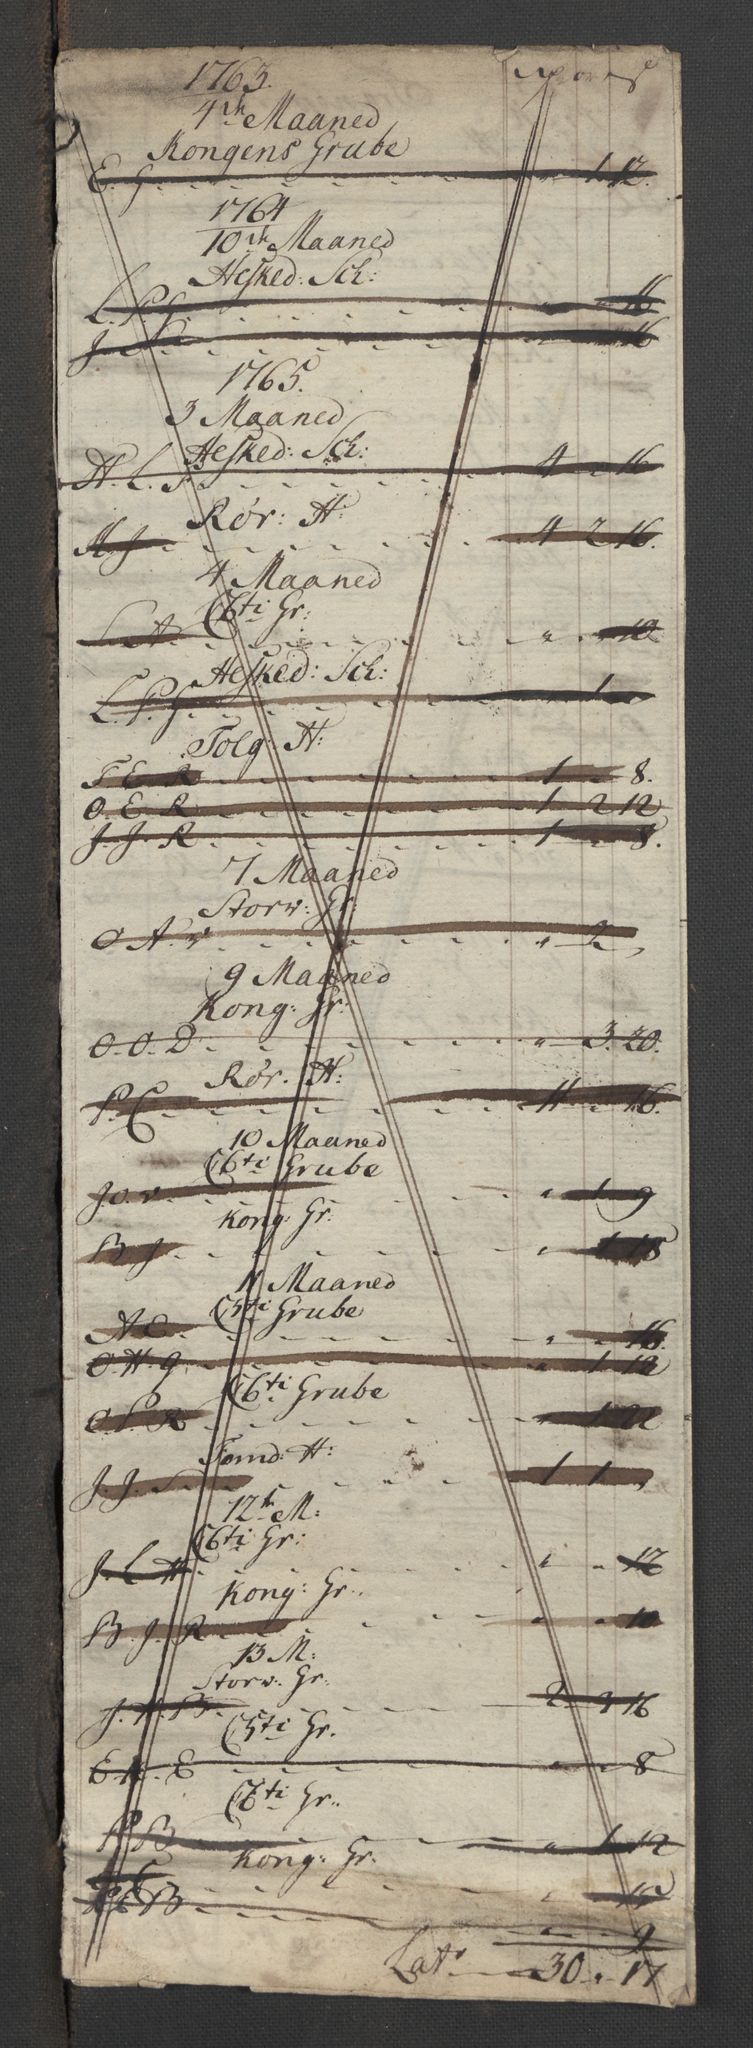 1763.
4de Maaned
Kongens Grube
E. J. " 1 12.
1764
10de Maaned
Hesked: Sch:
L. P. J. " " 16
J. " " 16
1765.
3 Maaned
Hesked: Sch:
H. L. J. 4 " 16
Rør: H:
M. J. 4 2 16.
4 Maaned
C6ti Gr:
L A " " 10
Hesked: Sch:
L. P. J. " 1 "
Tolg: H:
T E R 1 " 8.
O. E. R 1 2 12
J. J. R. 1 " 8.
7 Maaned
Storw: Gr:
O A. v " 2 "
9 Maaned
Kong: Gr:
O. O. D " 3. 20.
Rør. H:
P. C 11 " 16.
10 Maaned
C6ti Grube
J. O. v " 1 9
Kong: Gr:
B J " 1 18
11 Maaned
C5ti Grube
A C " " 16.
O. H. G. " 1 12
C6ti Grube
O P R " 1 22
Femd: H:
J. J. S 1 1 "
12te M:
C6ti Gr:
J. L H " " 12
Kong: Gr:
B. J. R " " 10
13 M:
Storw: Gr:
J. H. B. 2 2 16
C5ti Gr.
E. H. E " " 8
C6ti Gr:
P B " 1 12
Kong: Gr:
B " " 15
" " 9
Latr 30 " 17